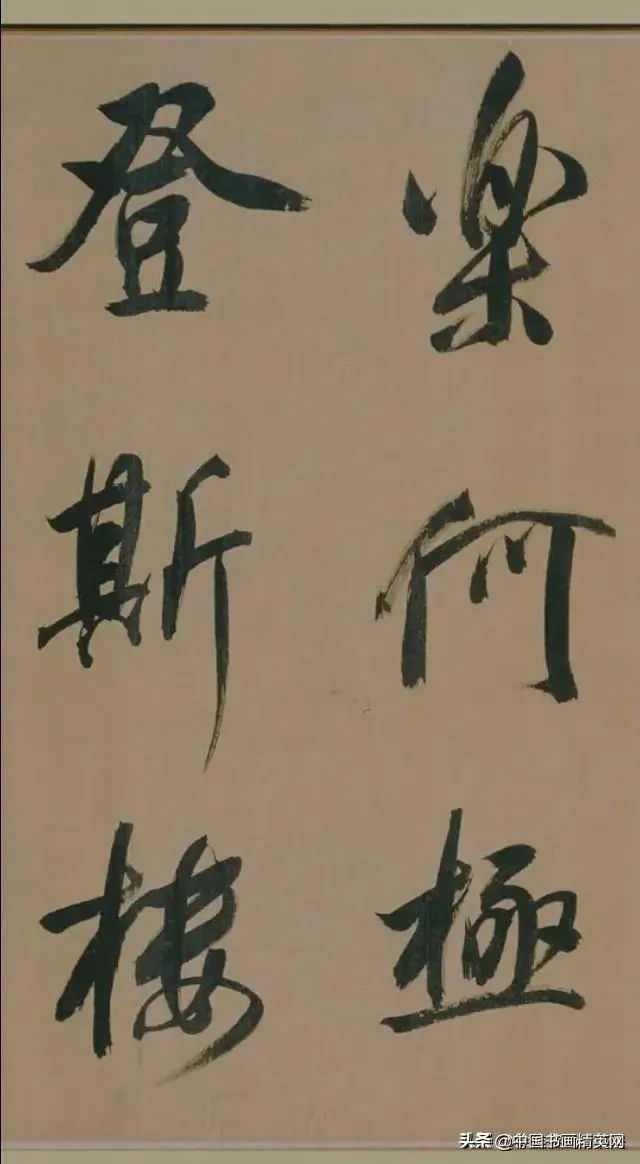 樂何極
登斯樓
头条@中国书画精英网